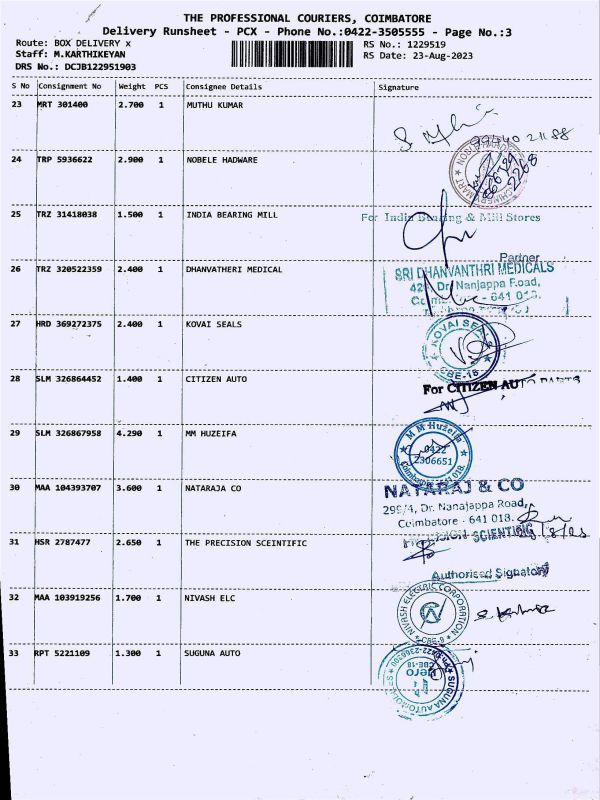 THE PROFESSIONAL COURIERS, COIMBATORE
Delivery Runsheet - PCX - Phone No.:0422-3505555 - Page No.:3
Route: BOX DELIVERY x
RS No.: 1229519
Staff: M.KARTHIKEYAN
RS Date: 23-Aug-2023
DRS No.: DCJB122951903
S No Consignment No Weight PCS Consignee Details Signature
23 MRT 301400 2.700 1 MUTHU KUMAR
24 TRP 5936622 2.900 1 NOBELE HADWARE
25 TRZ 31418038 1.500 1 INDIA BEARING MILL
For India Bearing & Mill Stores
Partner
26 TRZ 320522359 2.400 1 DHANVATHERI MEDICAL
SRI DHANVANTHRI MEDICALS
Dr. Nanjappa Road,
- 641 018.
27 HRD 369272375 2.400 1 KOVAI SEALS
KOVAI SEALS
CBE-18
28 SLM 326864452 1.400 1 CITIZEN AUTO
For CITIZEN AUTO PARTS
29 SLM 326867958 4.290 1 MM HUZEIFA
M M Huzeifa
0422
2306651
Coimbatore - 641 018.
30 MAA 104393707 3.600 1 NATARAJA CO
NATARAJ & CO
299/4, Dr. Nanajappa Road,
Coimbatore - 641 018.
31 HSR 2787477 2.650 1 THE PRECISION SCEINTIFIC
PRECISION SCIENTIFIC
Authorised Signatory
32 MAA 103919256 1.700 1 NIVASH ELC
NIVASH ELECTRIC CORPORATION
CBE-9
33 RPT 5221109 1.300 1 SUGUNA AUTO
SUGUNA AUTOMOBILES
CBE-18
Hero